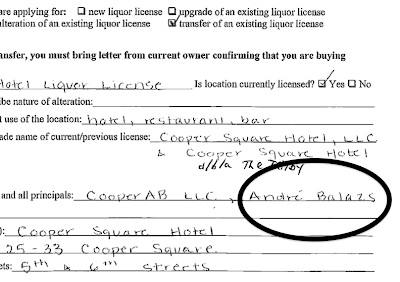 are applying for: ☐ new liquor license ☐ upgrade of an existing liquor license
alteration of an existing liquor license ☑ transfer of an existing liquor license
ansfer, you must bring letter from current owner confirming that you are buying
Hotel Liquor License Is location currently licensed? ☑ Yes ☐ No
ibe nature of alteration:
t use of the location: hotel, restaurant, bar
ade name of current/previous license: Cooper Square Hotel, LLC
& Cooper Square Hotel
d/b/a The Trilby
and all principals: CooperAB LLC, André Balazs
): Cooper Square Hotel
25-33 Cooper Square
ets: 5th & 6th Streets